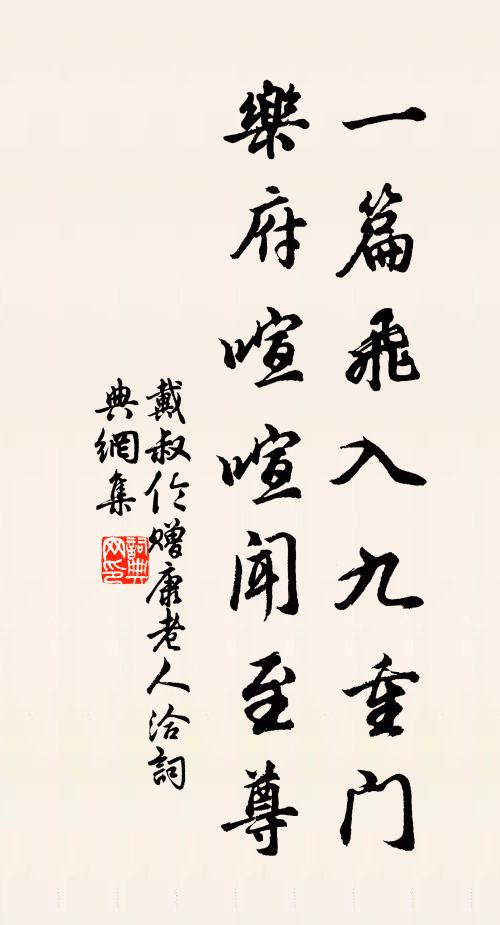 一篇飛入九重门
樂府喧喧聞至尊
戴叔伦赠康老人洽詞
典網集
詞典
网印